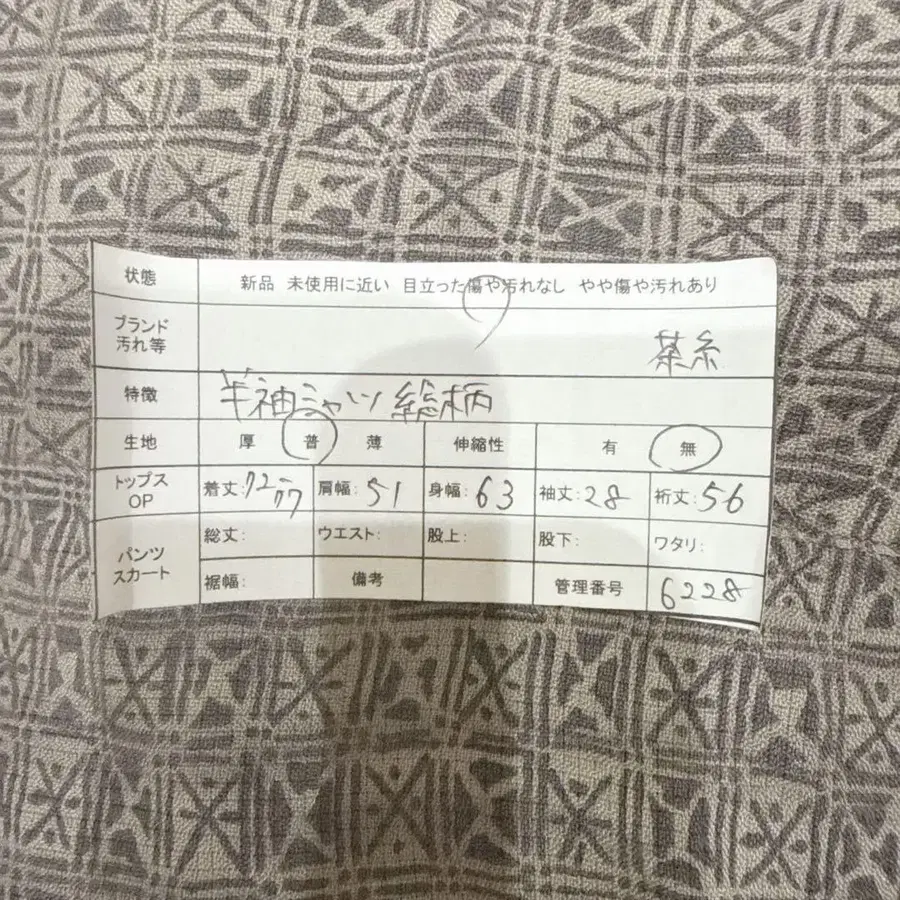 状態 新品 未使用に近い 目立った傷や汚れなし やや傷や汚れあり
ブランド
汚れ等 茶系
特徴 半袖シャツ 総柄
生地 厚 普 薄 伸縮性 有 無
トップス
OP 着丈:72-77 肩幅:51 身幅:63 袖丈:28 裄丈:56
パンツ
スカート 総丈: ウエスト: 股上: 股下: ワタリ:
裾幅: 備考 管理番号 6228